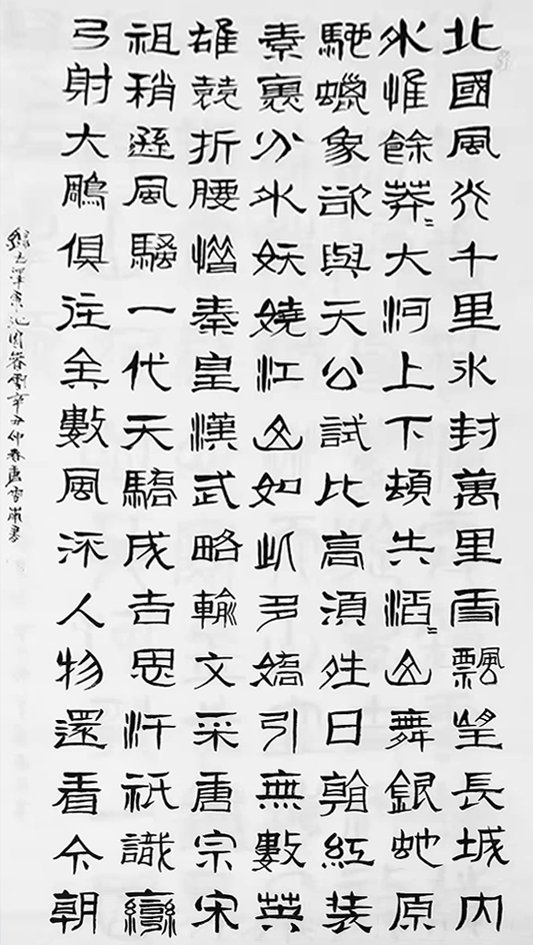 北國風光千里氷封萬里雪飄望長城内
外惟餘莽=大河上下頓失滔=山舞銀蛇原
馳蠟象欲與天公試比高須夝日看紅装
素裹分外妖嬈江山如此多嬌引無數英
雄競折腰惜秦皇漢武略輸文采唐宗宋
祖稍遜風騷一代天驕成吉思汗祇識彎
弓射大鵰俱往矣數風流人物還看今朝
錄毛澤東沁園春雪辛丑仲春唐雪書